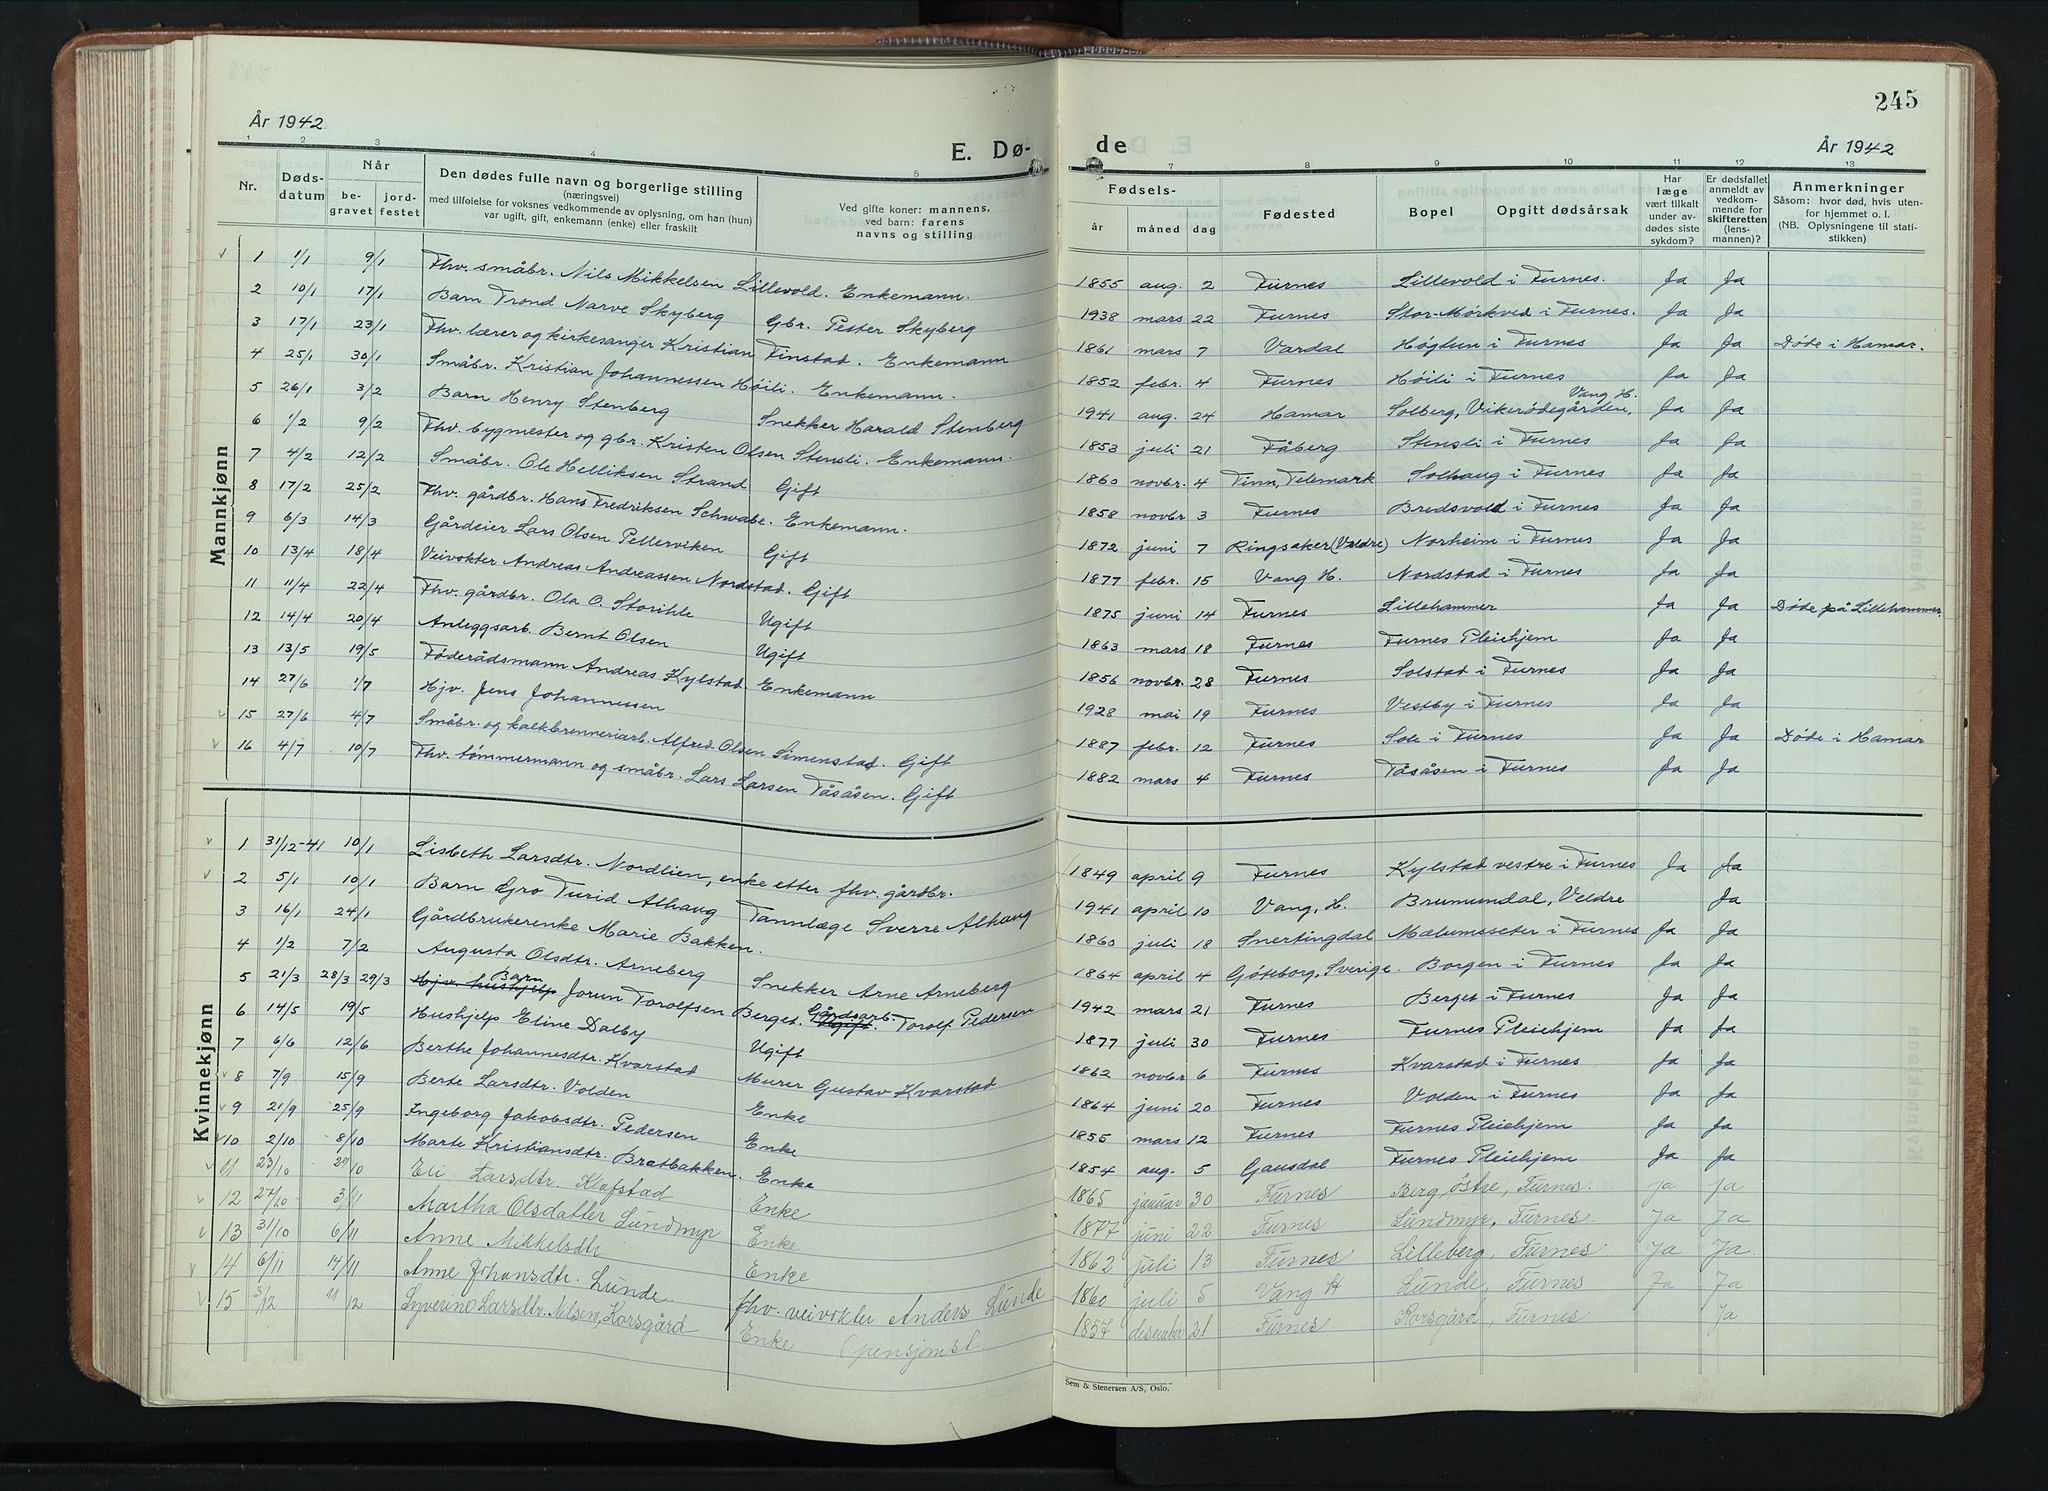 245
År 1942
E. Dø-
de
År 1942
1 2 3 4 5 7 8 9 10 11 12 13
Nr.
Døds-
datum
Når
be-
gravet
jord-
festet
Den dødes fulle navn og borgerlige stilling
(næringsvei)
med tilføielse for voksnes vedkommende av oplysning, om han (hun)
var ugift, gift, enkemann (enke) eller fraskilt
Ved gifte koner: mannens,
ved barn: farens
navns og stilling
Fødsels-
år måned dag
Fødested
Bopel
Opgitt dødsårsak
Har
læge
vært tilkalt
under av-
dødes siste
sykdom?
Er dødsfallet
anmeldt av
vedkom-
mende for
skifteretten
(lens-
mannen)?
Anmerkninger
Såsom: hvor død, hvis uten-
for hjemmet o. l.
(NB. Oplysningene til stati-
stikken)
Mannkjønn
1 1/1 9/1 Fhv. småbr. Nils Mikkelsen Lillevold. Enkemann. 1855 aug. 2 Furnes Lillevold i Furnes. Ja Ja
2 10/1 17/1 Barn Trond Narve Skyberg Gbr. Petter Skyberg 1938 mars 22 Furnes Stor-Mørkved i Furnes. Ja Ja
3 17/1 23/1 Fhv. lærer og kirkesanger Kristian Finstad. Enkemann 1861 mars 7 Vardal Høglun i Furnes Ja Ja Døde i Hamar.
4 25/1 30/1 Småbr. Kristian Johannessen Høili. Enkemann. 1852 febr. 4 Furnes Høili i Furnes Ja Ja
5 26/1 3/2 Barn Henry Stenberg Snekker Harald Stenberg 1941 aug. 24 Hamar Solberg, Vikerødegården, Vang H. Ja Ja
6 1/2 9/2 Fhv. bygmester og gbr. Kristen Olsen Stensli. Enkemann. 1853 juli 21 Fåberg Stensli i Furnes Ja Ja
7 4/2 12/2 Småbr. Ole Helliksen Strand Gift 1860 novbr. 4 Tinn, Telemark Solhaug i Furnes Ja Ja
8 17/2 25/2 Fhv. gårdbr. Hans Fredriksen Schwabe. Enkemann. 1858 novbr 3 Furnes Bredsvold i Furnes Ja Ja
9 6/3 14/3 Gårdeier Lars Olsen Pellerviken Gift 1872 juni 7 Ringsaker (Veldre) Norheim i Furnes Ja Ja
10 13/4 18/4 Veivokter Andreas Andreassen Nordstad. Gift 1877 febr. 15 Vang H. Nordstad i Furnes Ja Ja
11 11/4 22/4 Fhv. gårdbr. Ola O. Storihle Ugift 1875 juni 14 Furnes Lillehammer Ja Ja Døde på Lillehammer
12 14/4 20/4 Anleggsarb. Bernt Olsen Ugift 1863 mars 18 Furnes Furnes Pleiehjem Ja Ja
13 13/5 19/5 Føderådsmann Andreas Kylstad. Enkemann 1856 novbr. 28 Furnes Solstad i Furnes Ja Ja
14 27/6 1/7 Hjv. Jens Johannessen 1928 mai 19 Furnes Vestby i Furnes Ja Ja
15 27/6 4/7 Småbr. og kalkbrenneriarb. Alfred Olsen Simenstad. Gift 1887 febr. 12 Furnes Sole i Furnes Ja Ja Døde i Hamar
16 4/7 10/7 Fhv. tømmermann og småbr. Lars Larsen Tåsåsen. Gift 1882 mars 4 Furnes Tåsåsen i Furnes Ja Ja
Kvinnekjønn
1 31/12-41 10/1 Lisbeth Larsdtr. Nordlien, enke etter fhv. gårdbr. 1849 april 9 Furnes Kylstad vestre i Furnes Ja Ja
2 5/1 10/1 Barn Gro Turid Alhaug Tannlæge Sverre Alhaug 1941 april 10 Vang, H. Brumundal, Veldre Ja
3 16/1 24/1 Gårdbrukerenke Marie Bakken. 1860 juli 18 Snertingdal Mælumsseter i Furnes Ja Ja
4 1/2 7/2 Augusta Olsdtr. Arneberg Snekker Arne Arneberg 1864 april 4 Göteborg, Sverige. Borgen i Furnes Ja Ja
5 21/3 28/3 29/3 Hjv. hushjelp Barn Jorun Torolfsen Berget. Ugift. Gårdsarb. Torolf Pedersen 1942 mars 21 Furnes Berget i Furnes Ja Ja
6 14/5 19/5 Hushjelp Eline Dalby Ugift 1877 juli 30 Furnes Furnes Pleiehjem Ja Ja
7 6/6 12/6 Berthe Johannesdtr. Kvarstad Murer Gustav Kvarstad 1862 novbr 6 Furnes Kvarstad i Furnes Ja Ja
8 7/9 15/9 Berte Larsdtr. Volden Enke 1864 juni 20 Furnes Volden i Furnes Ja Ja
9 21/9 25/9 Ingeborg Jakobsdtr. Pedersen Enke 1855 mars 12 Furnes Furnes Pleiehjem Ja Ja
10 2/10 8/10 Marte Kristiansdtr. Bratbakken. Enke 1854 aug. 5 Gausdal Furnes Pleiehjem Ja Ja
11 23/10 Eli Larsdtr. Klafstad Enke 1865 januar 30 Furnes Berg østre, Furnes. ja ja
12 27/10 3/11 Martha Olsdatter Lundmyr Enke 1877 juni 22 Furnes Lundmyr, Furnes. Ja Ja
13 31/10 6/11 Anne Mikkelsdtr Enke 1862 juli 13 Furnes Lilleberg, Furnes. Ja Ja
14 6/11 14/11 Anne Johansdtr. Lunde fhv. veivokter Anders Lunde 1860 juli 5 Vang H Lunde, Furnes Ja Ja
15 3/12 11/12 Syverine Larsdtr. Nilsen, Korsgård Enke (pensjonist. 1857 desember 21 Furnes Korsgård, Furnes ja
Sem & Stenersen A/S, Oslo.